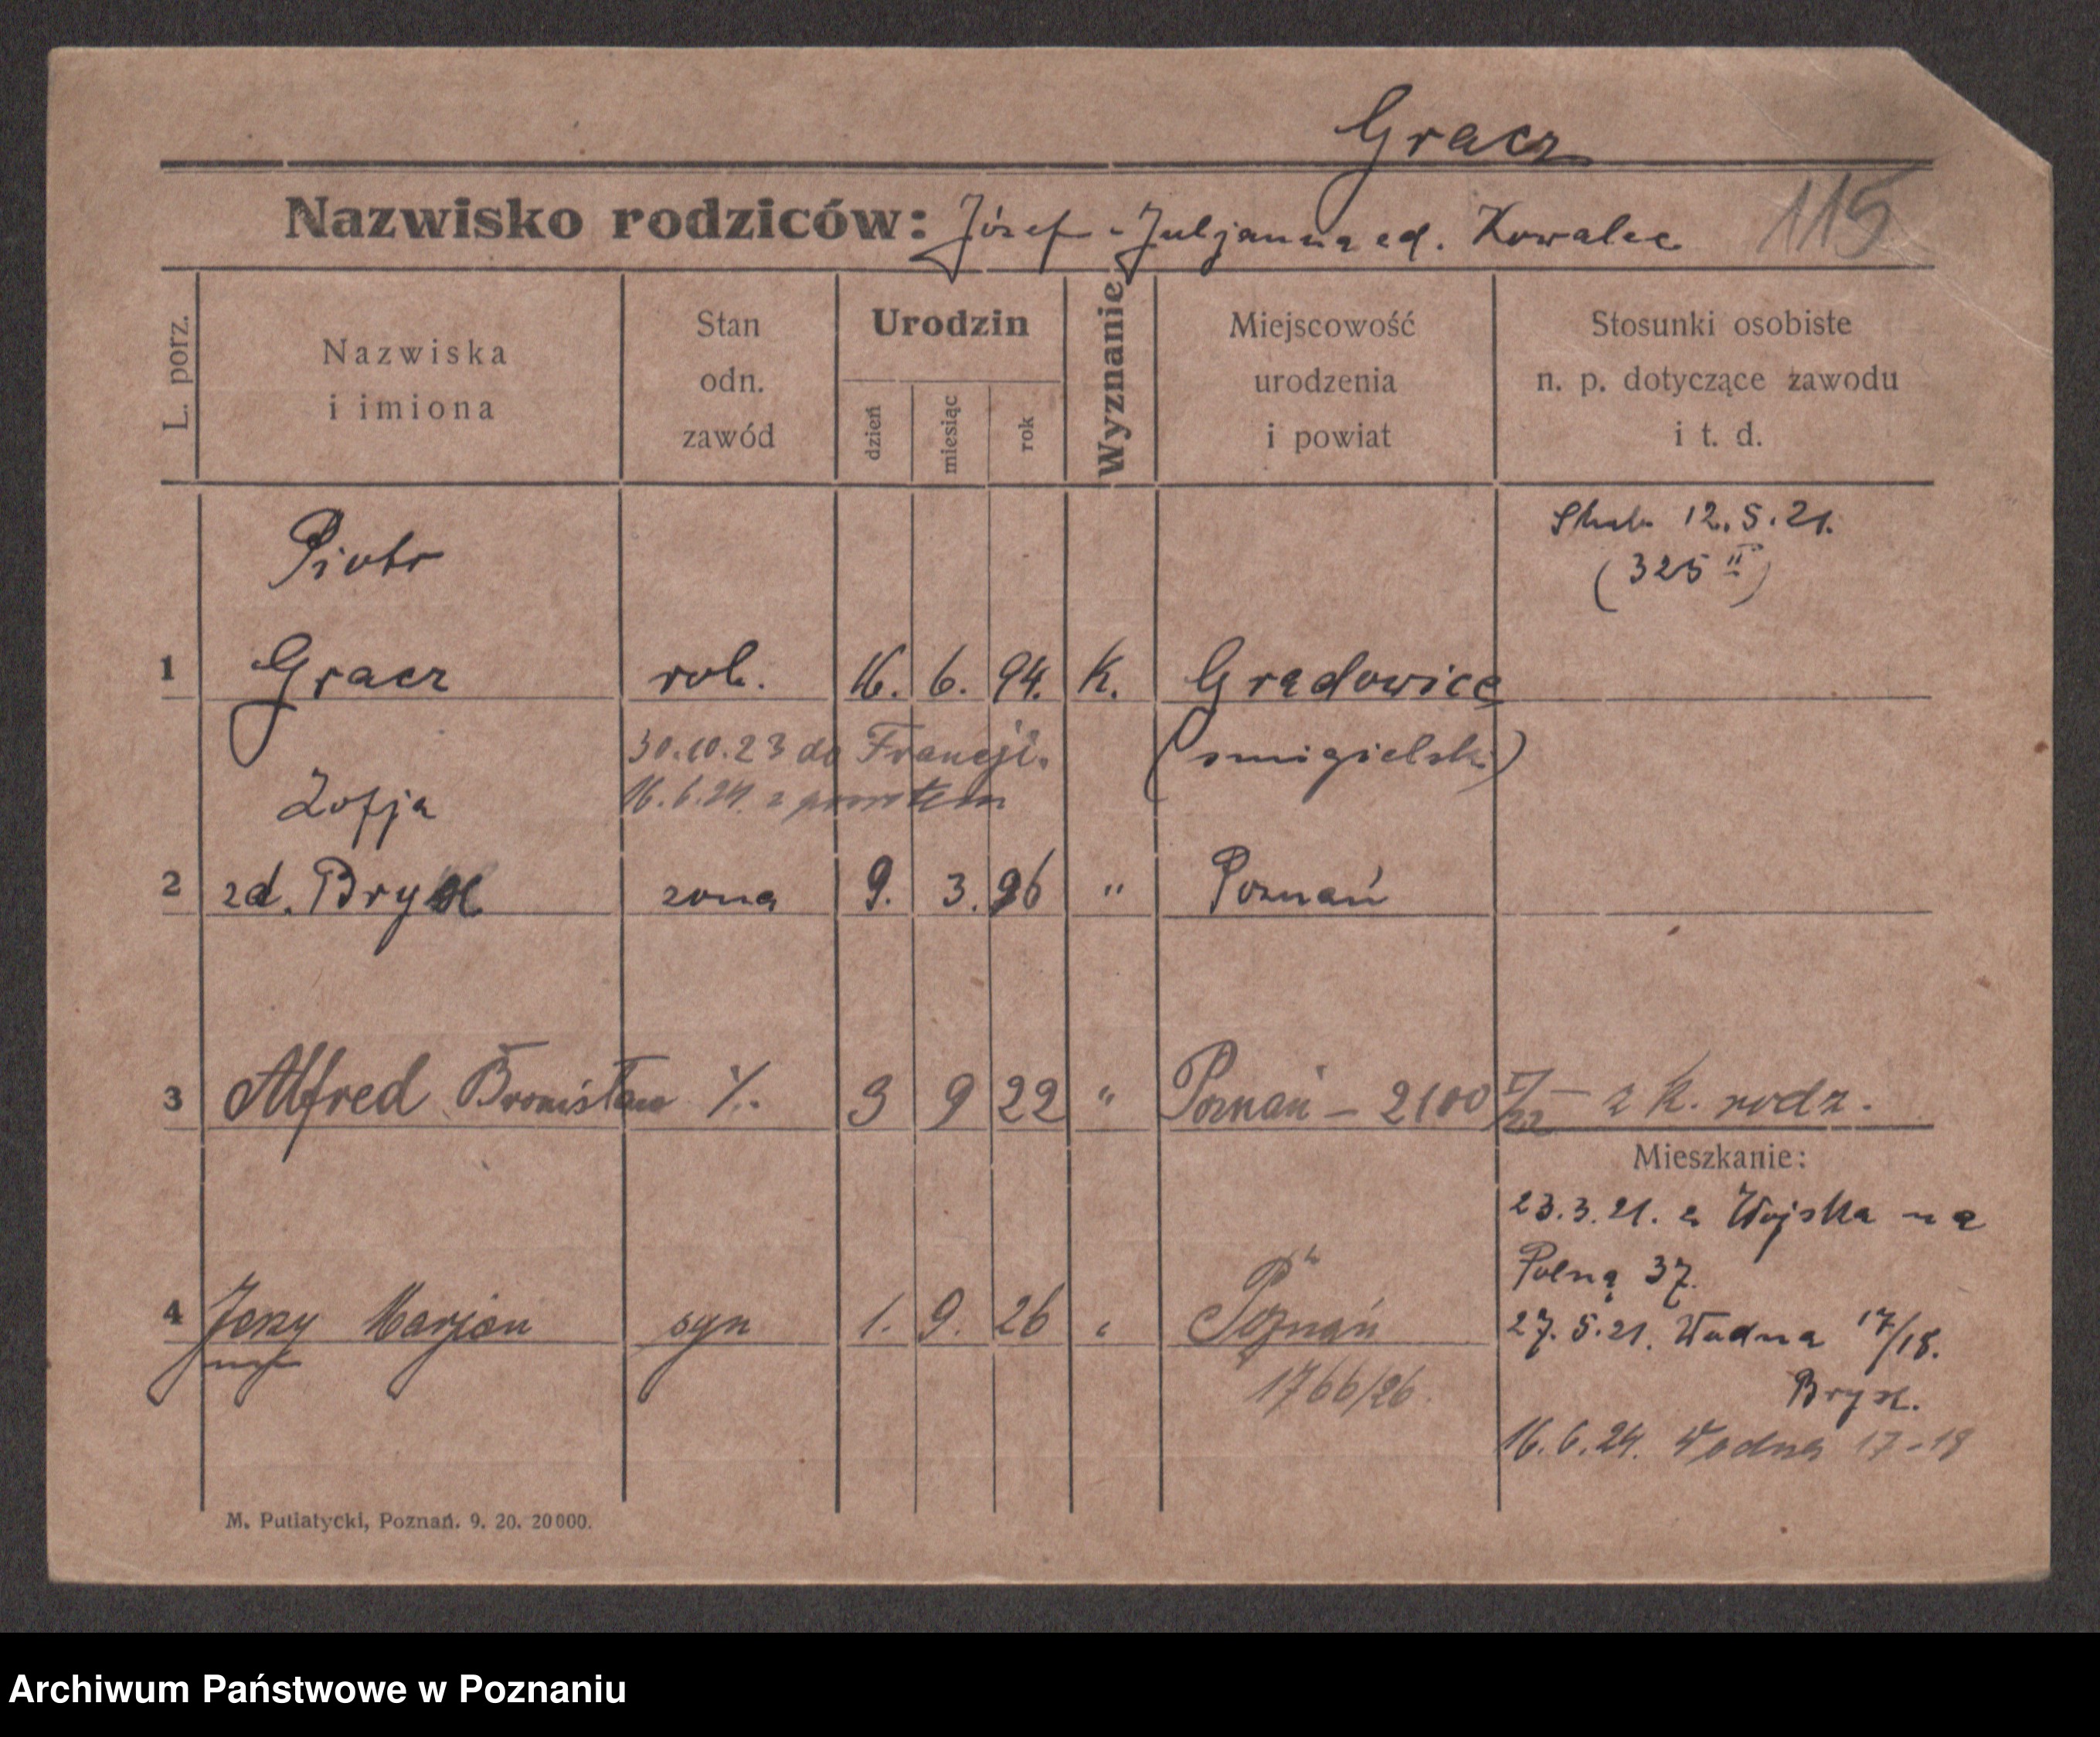 Gracz
Nazwisko rodziców: Józef - Juljanna zd. Kowalec
115
L. porz.
Nazwiska
i imiona
Stan
odn.
zawód
Urodzin
dzień
miesiąc
rok
Wyznanie
Miejscowość
urodzenia
i powiat
Stosunki osobiste
n. p. dotyczące zawodu
i t. d.
Piotr
12.5.21.
(325 II)
1 Gracz rob. 16. 6. 94. K. Gradowice
30.10.23 do Francji. (smigielski)
16.6.24. z powrotem
Zofja
2 zd. Brysz zona 9. 3. 96 " Poznań
3 Alfred Bronisław /. 3 9 22 " Poznań - 2100 z K. rodz.
Mieszkanie:
23.3.21. z Wojska na
Polną 37.
4 Jerzy Marjan syn 1. 9. 26 " Poznań
27.5.21. Wodna 17/18.
1766/26.
Brysz.
16.6.24. Wodna 17-18
M. Putiatycki, Poznań. 9. 20. 20000.
Archiwum Państwowe w Poznaniu